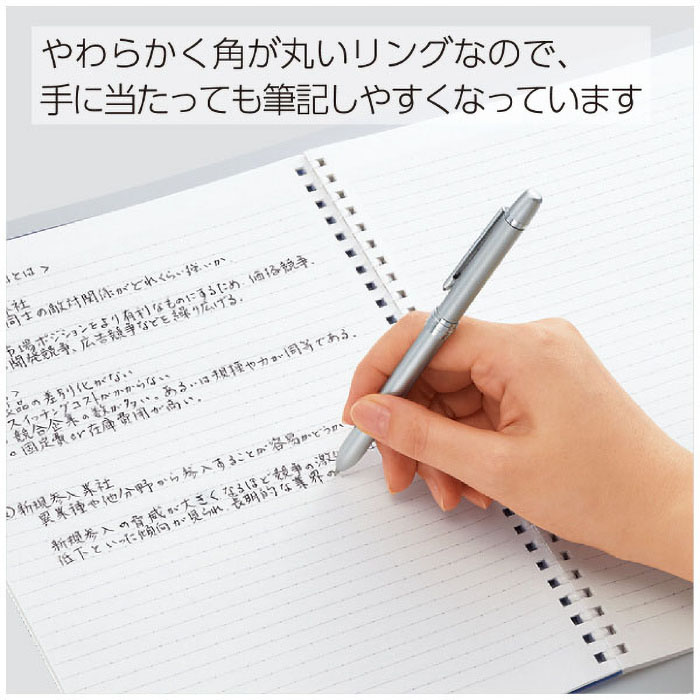 やわらかく角が丸いリングなので、
手に当たっても筆記しやすくなっています
とは >
社
同士の敵対関係がどれくらい強いか
市場ポジションをより有利なものにするため、価格競争、
開発競争、広告競争などを繰り広げる。
>
製品の差別化がない
スイッチングコストがかからない
競合企業の数が多い、あるいは規模や力が同等である。
固定費や在庫費用が高い。
新規参入業社
異業種や他分野から参入することが容易かどうか
新規参入の脅威が大きくなるほど競争の激
低下といった傾向が見られ 長期的な業界の